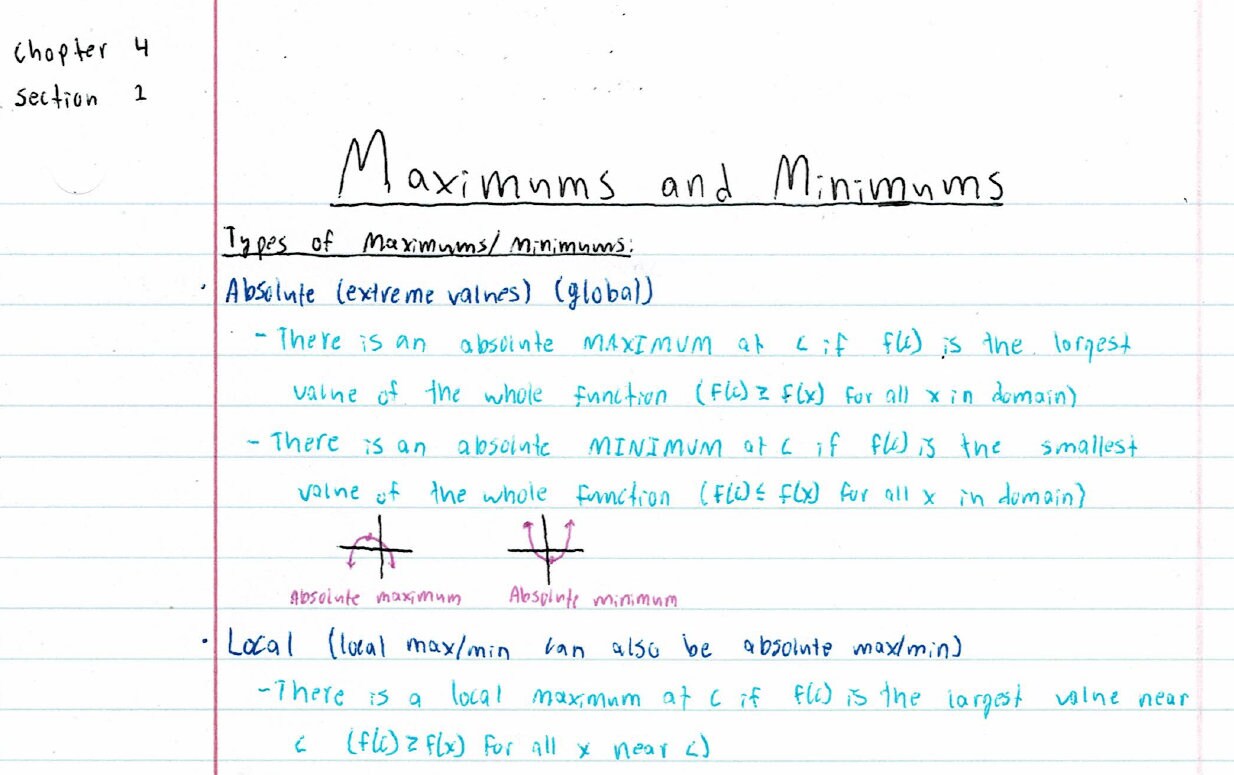 Chapter 4
Section 1
Maximums and Minimums
Types of Maximums/Minimums:
· Absolute (extreme values) (global)
- There is an absolute MAXIMUM at c if f(c) is the largest
value of the whole function (f(c) ≥ f(x) for all x in domain)
- There is an absolute MINIMUM at c if f(c) is the smallest
value of the whole function (f(c) ≤ f(x) for all x in domain)
Absolute maximum Absolute minimum
· Local (local max/min can also be absolute max/min)
- There is a local maximum at c if f(c) is the largest value near
c (f(c) ≥ f(x) for all x near c)